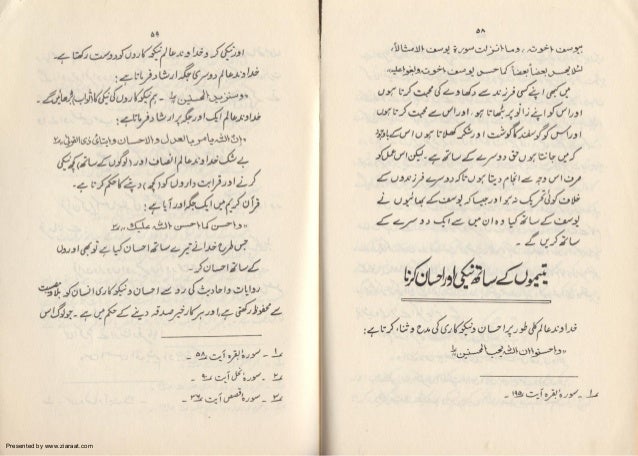 ۵۸
بیوسف اخوتہ، وما انزلت سورۃ یوسف الا مثالاً،
لئلا یحسد بعضنا بعضاً کما حسد یوسف اخوتہ وبغوا علیہ،،
میں کبھی اپنے کسی فرزند سے دکھاوے کی محبت کرتا ہوں
اور اس کو اپنے زانو پر بٹھاتا ہوں، اور اس سے محبت کرتا ہوں
اور اس کو گوسفند کا گوشت اور شکر کھلاتا ہوں اس کے باوجود
کہ میں جانتا ہوں حق دوسرے کے ساتھ ہے۔ لیکن اس عمل کو
صرف اس وجہ سے انجام دیتا ہوں تاکہ دوسرے فرزندوں کے
خلاف کوئی تحریک نہ ہو اور جیسا کہ یوسف کے بھائیوں نے
یوسف کے ساتھ کیا وہ ان میں سے ایک دوسرے کے
ساتھ کریں گے۔
یتیموں کے ساتھ نیکی اور احسان کرنا
خداوند عالم کلی طور پر احسان و نیکوکاری کی مدح و ثناء کرتا ہے:
،،واحسنوا ان اللہ یحب المحسنین
۱۔ سورۂ بقرہ آیت ۱۹۵۔
۵۹
اور نیکی کرو خداوند عالم نیکوکاروں کو دوست رکھتا ہے۔
خداوند عالم دوسری جگہ ارشاد فرماتا ہے:
،،وسنزید المحسنین۔ ہم نیکوکاروں کی نیکی کا ثواب بڑھائیں گے۔
خداوند عالم ایک اور جگہ پر ارشاد فرماتا ہے:
،،ان اللہ یامر بالعدل والاحسان وایتائی ذی القربیٰ
بے شک خداوند عالم انصاف اور (لوگوں کے ساتھ) نیکی
کرنے اور قرابت داروں کو (کچھ) دینے کا حکم کرتا ہے۔
قرآن کریم میں ایک جگہ اور آیا ہے:
،،واحسن کما احسن اللہ علیک،،
جس طرح خدا نے تیرے ساتھ احسان کیا ہے تو بھی اوروں
کے ساتھ احسان کر۔
روایات و احادیث کی رو سے احسان و نیکوکاری انسان کو بلا و مصیبت
سے محفوظ رکھتی ہے، اور ہر کار خیر صدقہ دینے کے حکم میں ہے۔ جو لوگ اس
۱۔ سورۂ بقرہ آیت ۵۸۔
۲۔ سورۂ نحل آیت ۹۰۔
۳۔ سورۂ قصص آیت
Presented by www.ziaraat.com